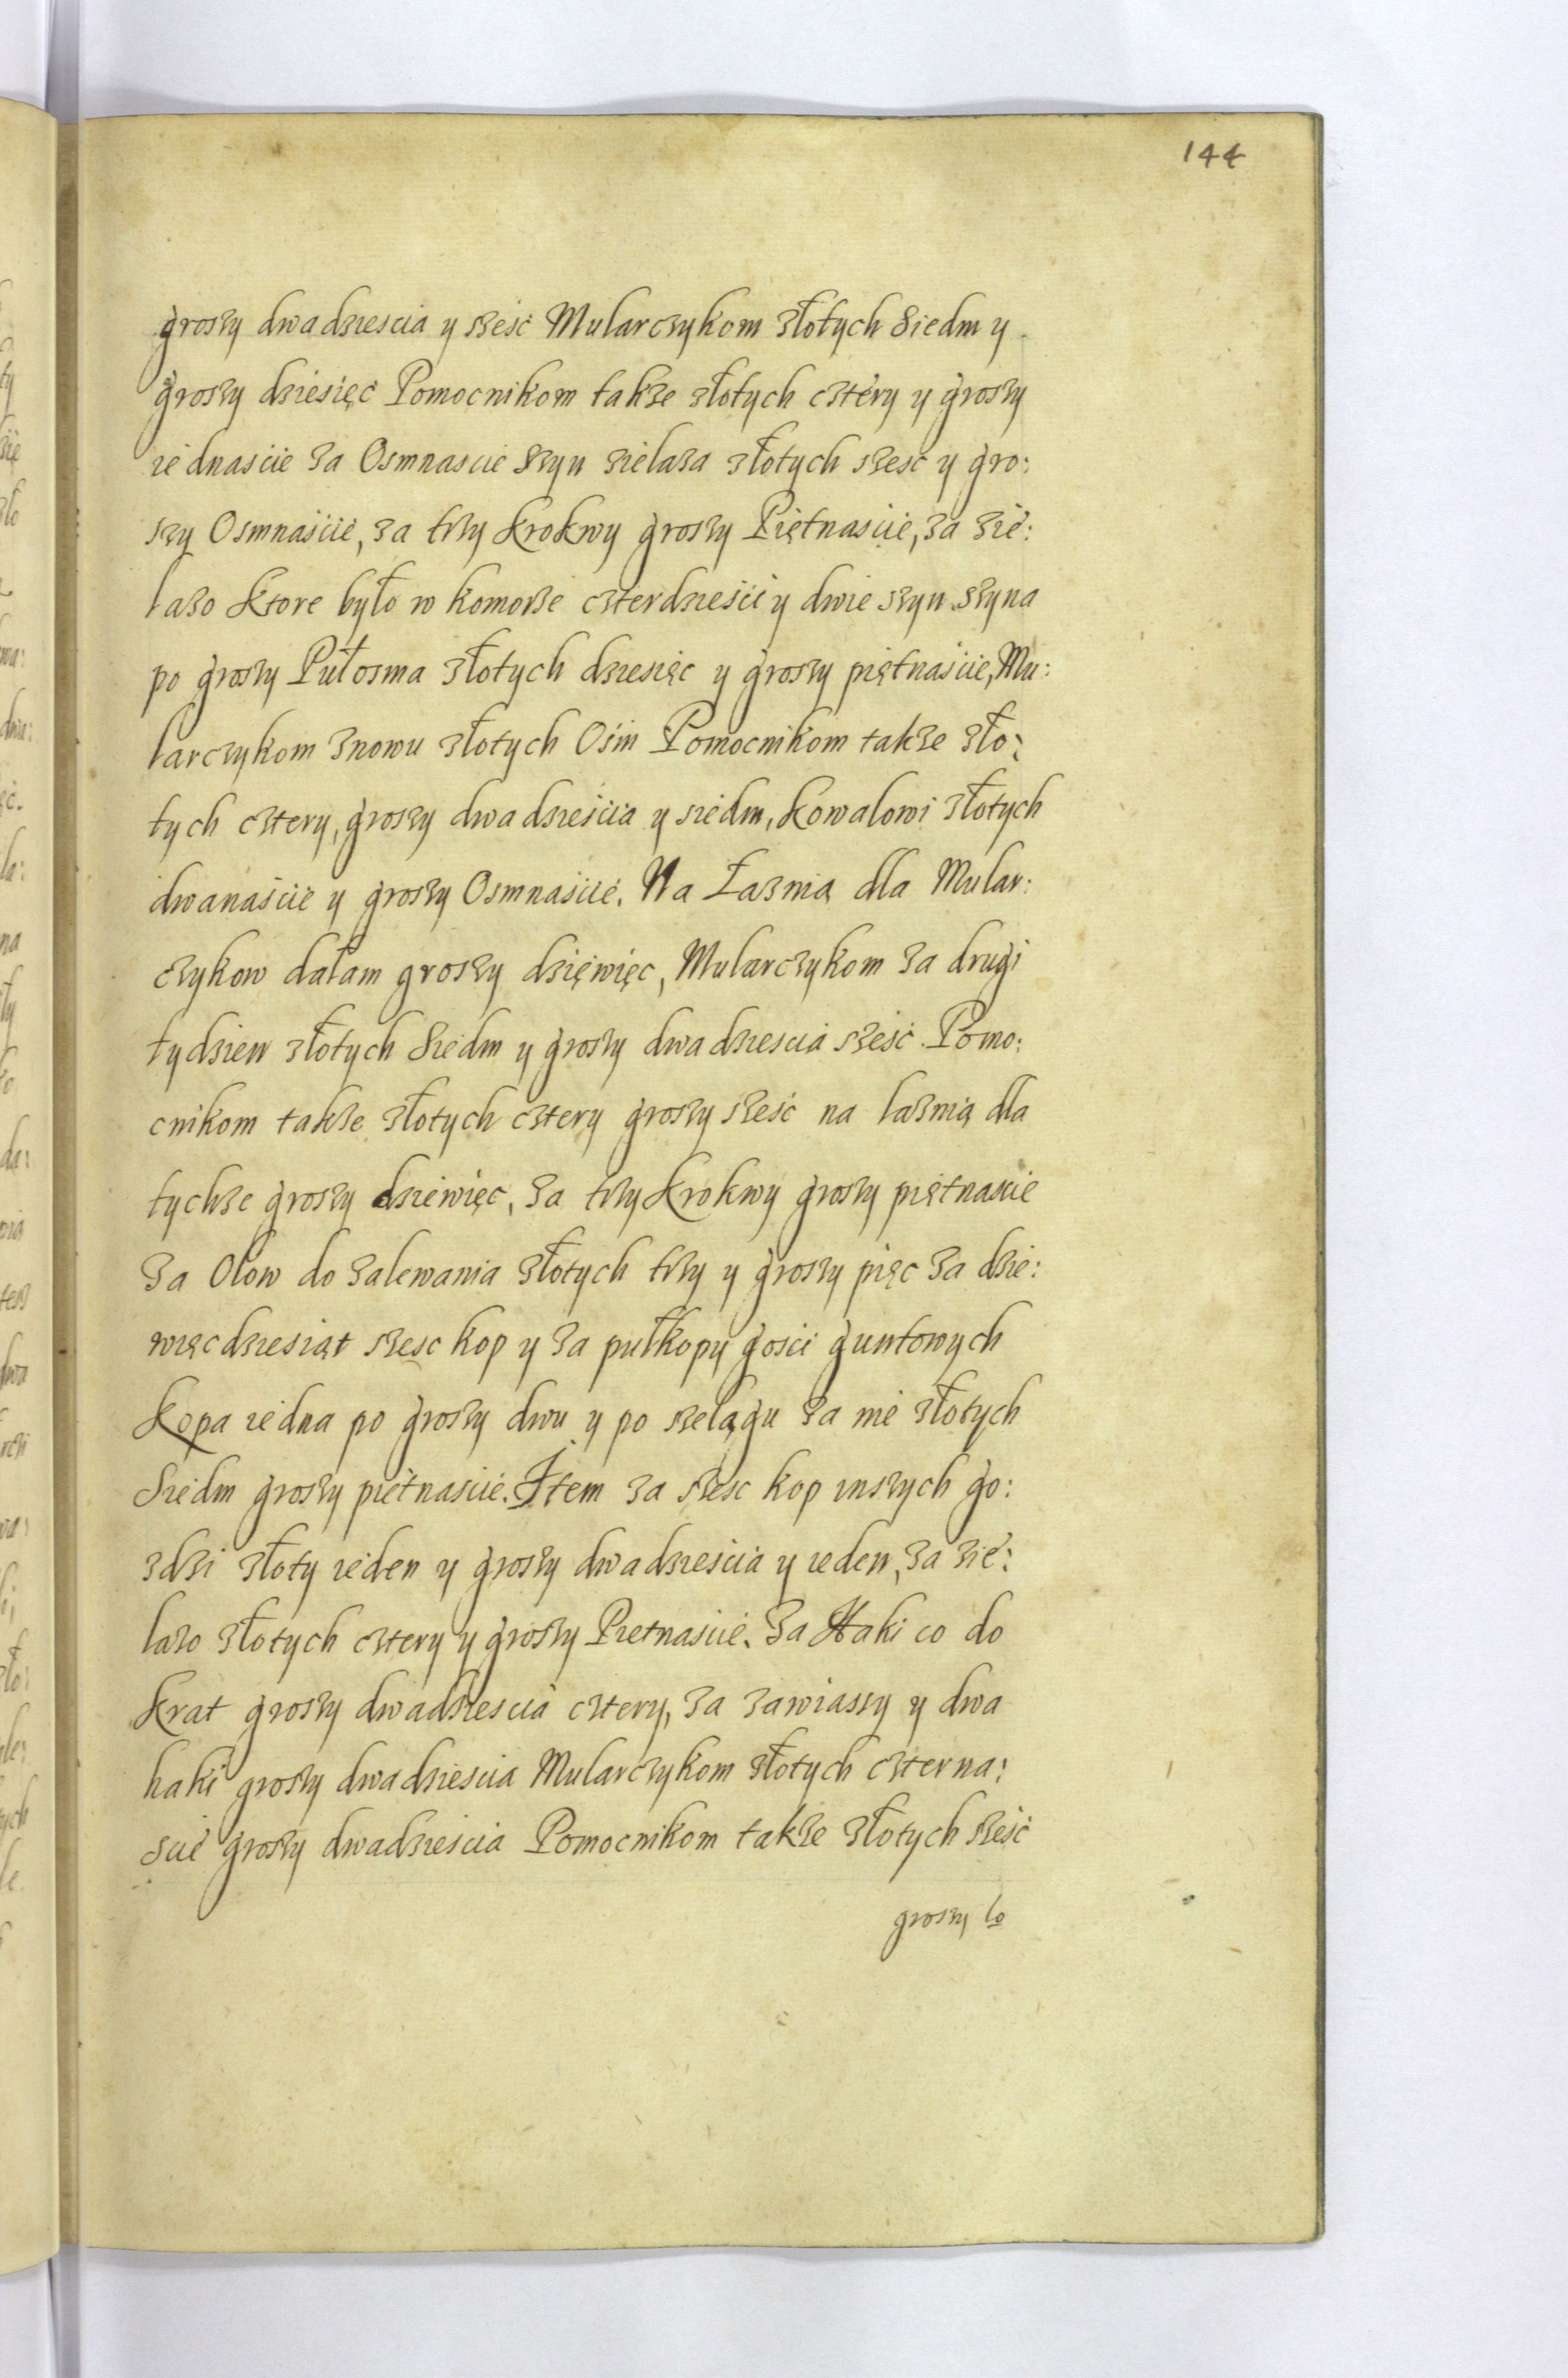 144
groszy dwadziescia y szesc Mularczykom złotych Siedm y
groszy dziesięć Pomocnikom takze złotych cztery y groszy
iednascie za Osmnascie Szyn zielaza złotych szesc y gro:
szy Osmnaście, za trzy Krokwy groszy Piętnascie, za zie:
lazo Ktore było w komorze czterdziesci y dwie szyn szyna
po groszy Pułosma złotych dziesięc y groszy piętnaście, Mu:
larczykom znowu złotych Ośm Pomocnikom takze zło:
tych cztery, groszy dwadzieścia y siedm, Kowalowi złotych
dwanaście y groszy Osmnaście. Na Łaznią dla Mular:
czykow dałam groszy dzięwięc, Mularczykom za drugi
tydzien złotych Siedm y groszy dwadziescia sześć Pomo:
cnikom takze złotych cztery groszy sześć na laznią dla
tychze groszy dziewięc, za trzy Krokwy groszy piętnascie
za Olow do zalewania złotych trzy y groszy pięc za dzie:
więcdziesiąt szesc kop y za pułkopy gosci guntowych
Kopa iedna po groszy dwu y po szelągu za nie złotych
Siedm groszy pietnascie. Item za szesc kop inszych go:
zdzi złoty ieden y groszy dwadziescia y ieden, za zie:
lazo złotych cztery y groszy Pietnascie. Za Haki co do
Krat groszy dwadziescia cztery, za zawiassy y dwa
haki groszy dwadziescia Mularczykom złotych czterna:
scie groszy dwadziescia Pomocnikom takze złotych sześć
groszy